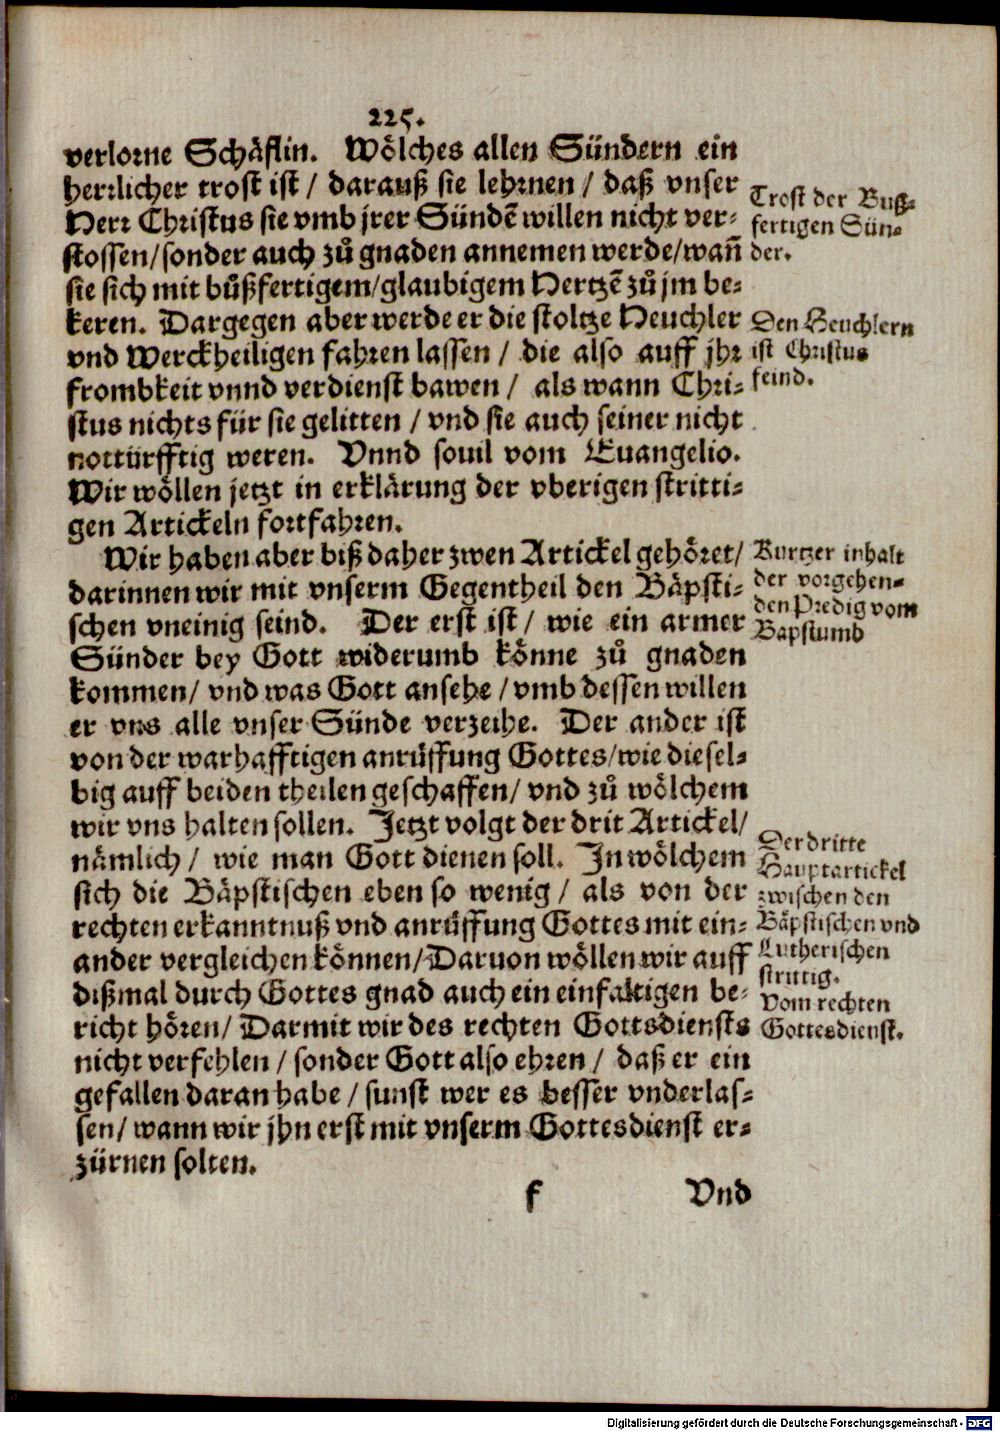 225.
verlorne Schäflin. Wölches allen Sündern ein
herrlicher trost ist / darauß sie lehrnen / daß vnser
Herr Christus sie vmb jrer Sündẽ willen nicht ver-
stossen/sonder auch zů gnaden annemen werde/wañ
sie sich mit bůßfertigem/glaubigem Hertzẽ zů jm be-
keren. Dargegen aber werde er die stoltze Heuchler
vnd Werckheiligen fahren lassen / die also auff jhr
frombkeit vnnd verdienst bawen / als wann Chri-
stus nichts für sie gelitten / vnd sie auch seiner nicht
nottürfftig weren. Vnnd souil vom Euangelio.
Wir wöllen jetzt in erklärung der vberigen stritti-
gen Artickeln fortfahren.
Trost der Buß-
fertigen Sün-
der.
Den Heuchlern
ist Christus
feind.
Wir haben aber biß daher zwen Artickel gehöret/
darinnen wir mit vnserm Gegentheil den Bäpsti-
schen vneinig seind. Der erst ist / wie ein armer
Sünder bey Gott widerumb könne zů gnaden
kommen/ vnd was Gott ansehe / vmb dessen willen
er vns alle vnser Sünde verzeihe. Der ander ist
von der warhafftigen anrüffung Gottes/wie diesel-
big auff beiden theilen geschaffen/ vnd zů wölchem
wir vns halten sollen. Jetzt volgt der drit Artickel/
nämlich / wie man Gott dienen soll. In wölchem
sich die Bäpstischen eben so wenig / als von der
rechten erkanntnuß vnd anrüffung Gottes mit ein-
ander vergleichen können/Daruon wöllen wir auff
dißmal durch Gottes gnad auch ein einfaltigen be-
richt hören/ Darmit wir des rechten Gottsdiensts
nicht verfehlen / sonder Gott also ehren / daß er ein
gefallen daran habe / sunst wer es besser vnderlas-
sen/ wann wir jhn erst mit vnserm Gottesdienst er-
zürnen solten.
Kurtzer inhalt
der vorgehen-
den Predig vom
Bapstumb
Der dritte
Hauptartickel
zwischen den
Bäpstischen vnd
Lutherischen
strittig.
Vom rechten
Gottesdienst.
f Vnd
Digitalisierung gefördert durch die Deutsche Forschungsgemeinschaft - DFG